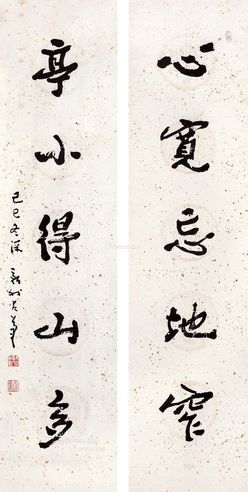 心寬忘地窄
亭小得山多
己巳冬深